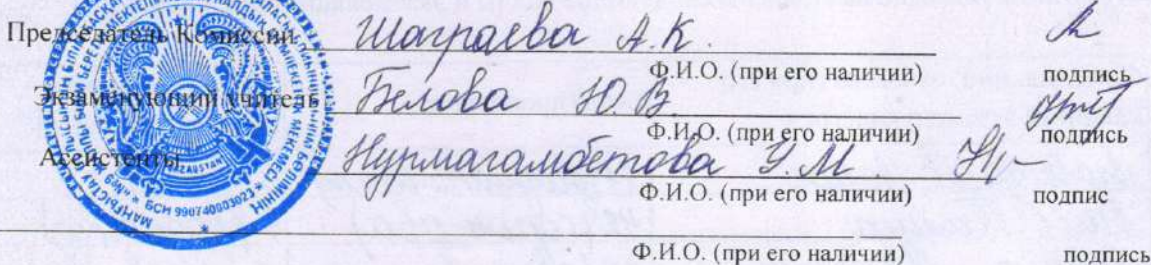 Председатель Комиссии Шаграева А.К.
Ф.И.О. (при его наличии) подпись
Экзаменующий учитель Белова Ю.В.
Ф.И.О. (при его наличии) подпись
Ассистенты Нурмагамбетова У.М
Ф.И.О. (при его наличии) подпис
Ф.И.О. (при его наличии) подпись
QAZAQSTAN
БСН 990740003023